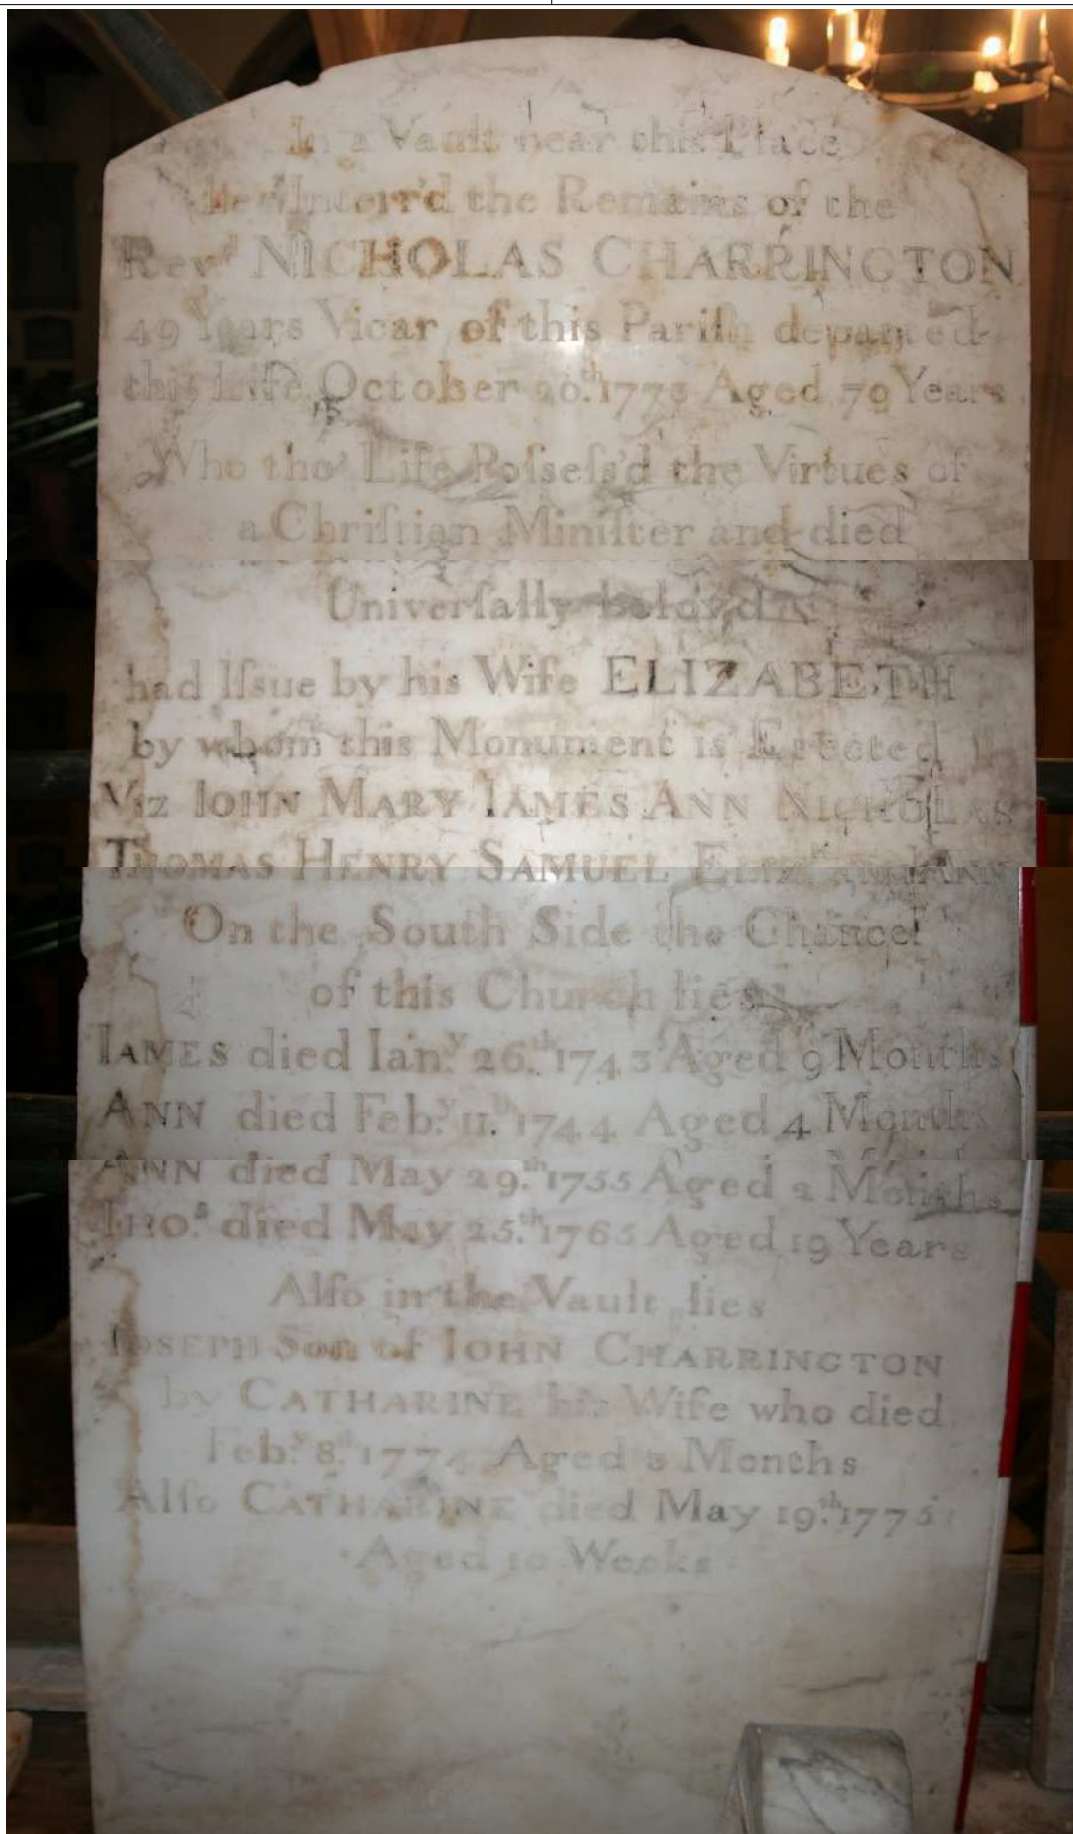 In a Vault near this Place
lies Interr'd the Remains of the
Revd NICHOLAS CHARRINGTON
49 Years Vicar of this Pariſh departed
this Life October 20.th 177 Aged 79 Years
Who tho' Life Poſseſs'd the Virtues of
a Chriſtian Miniſter and died
Univerſally belov'd
had Iſsue by his Wife ELIZABETH
by whom this Monument is Erected
Viz IOHN MARY IAMES ANN NICHOLAS
THOMAS HENRY SAMUEL ELIZ. ANN
On the South Side the Chancel
of this Church lies
IAMES died Ian.y 26.th 1743 Aged 9 Months
ANN died Feb.y 11.th 1744 Aged 4 Months
ANN died May 29.th 1755 Aged 2 Months
THO.s died May 25.th 1765 Aged 19 Years
Alſo in the Vault lies
IOSEPH Son of IOHN CHARRINGTON
by CATHARINE his Wife who died
Feb.y 8.th 1774 Aged 3 Months
Alſo CATHARINE died May 19.th 1775
Aged 10 Weeks